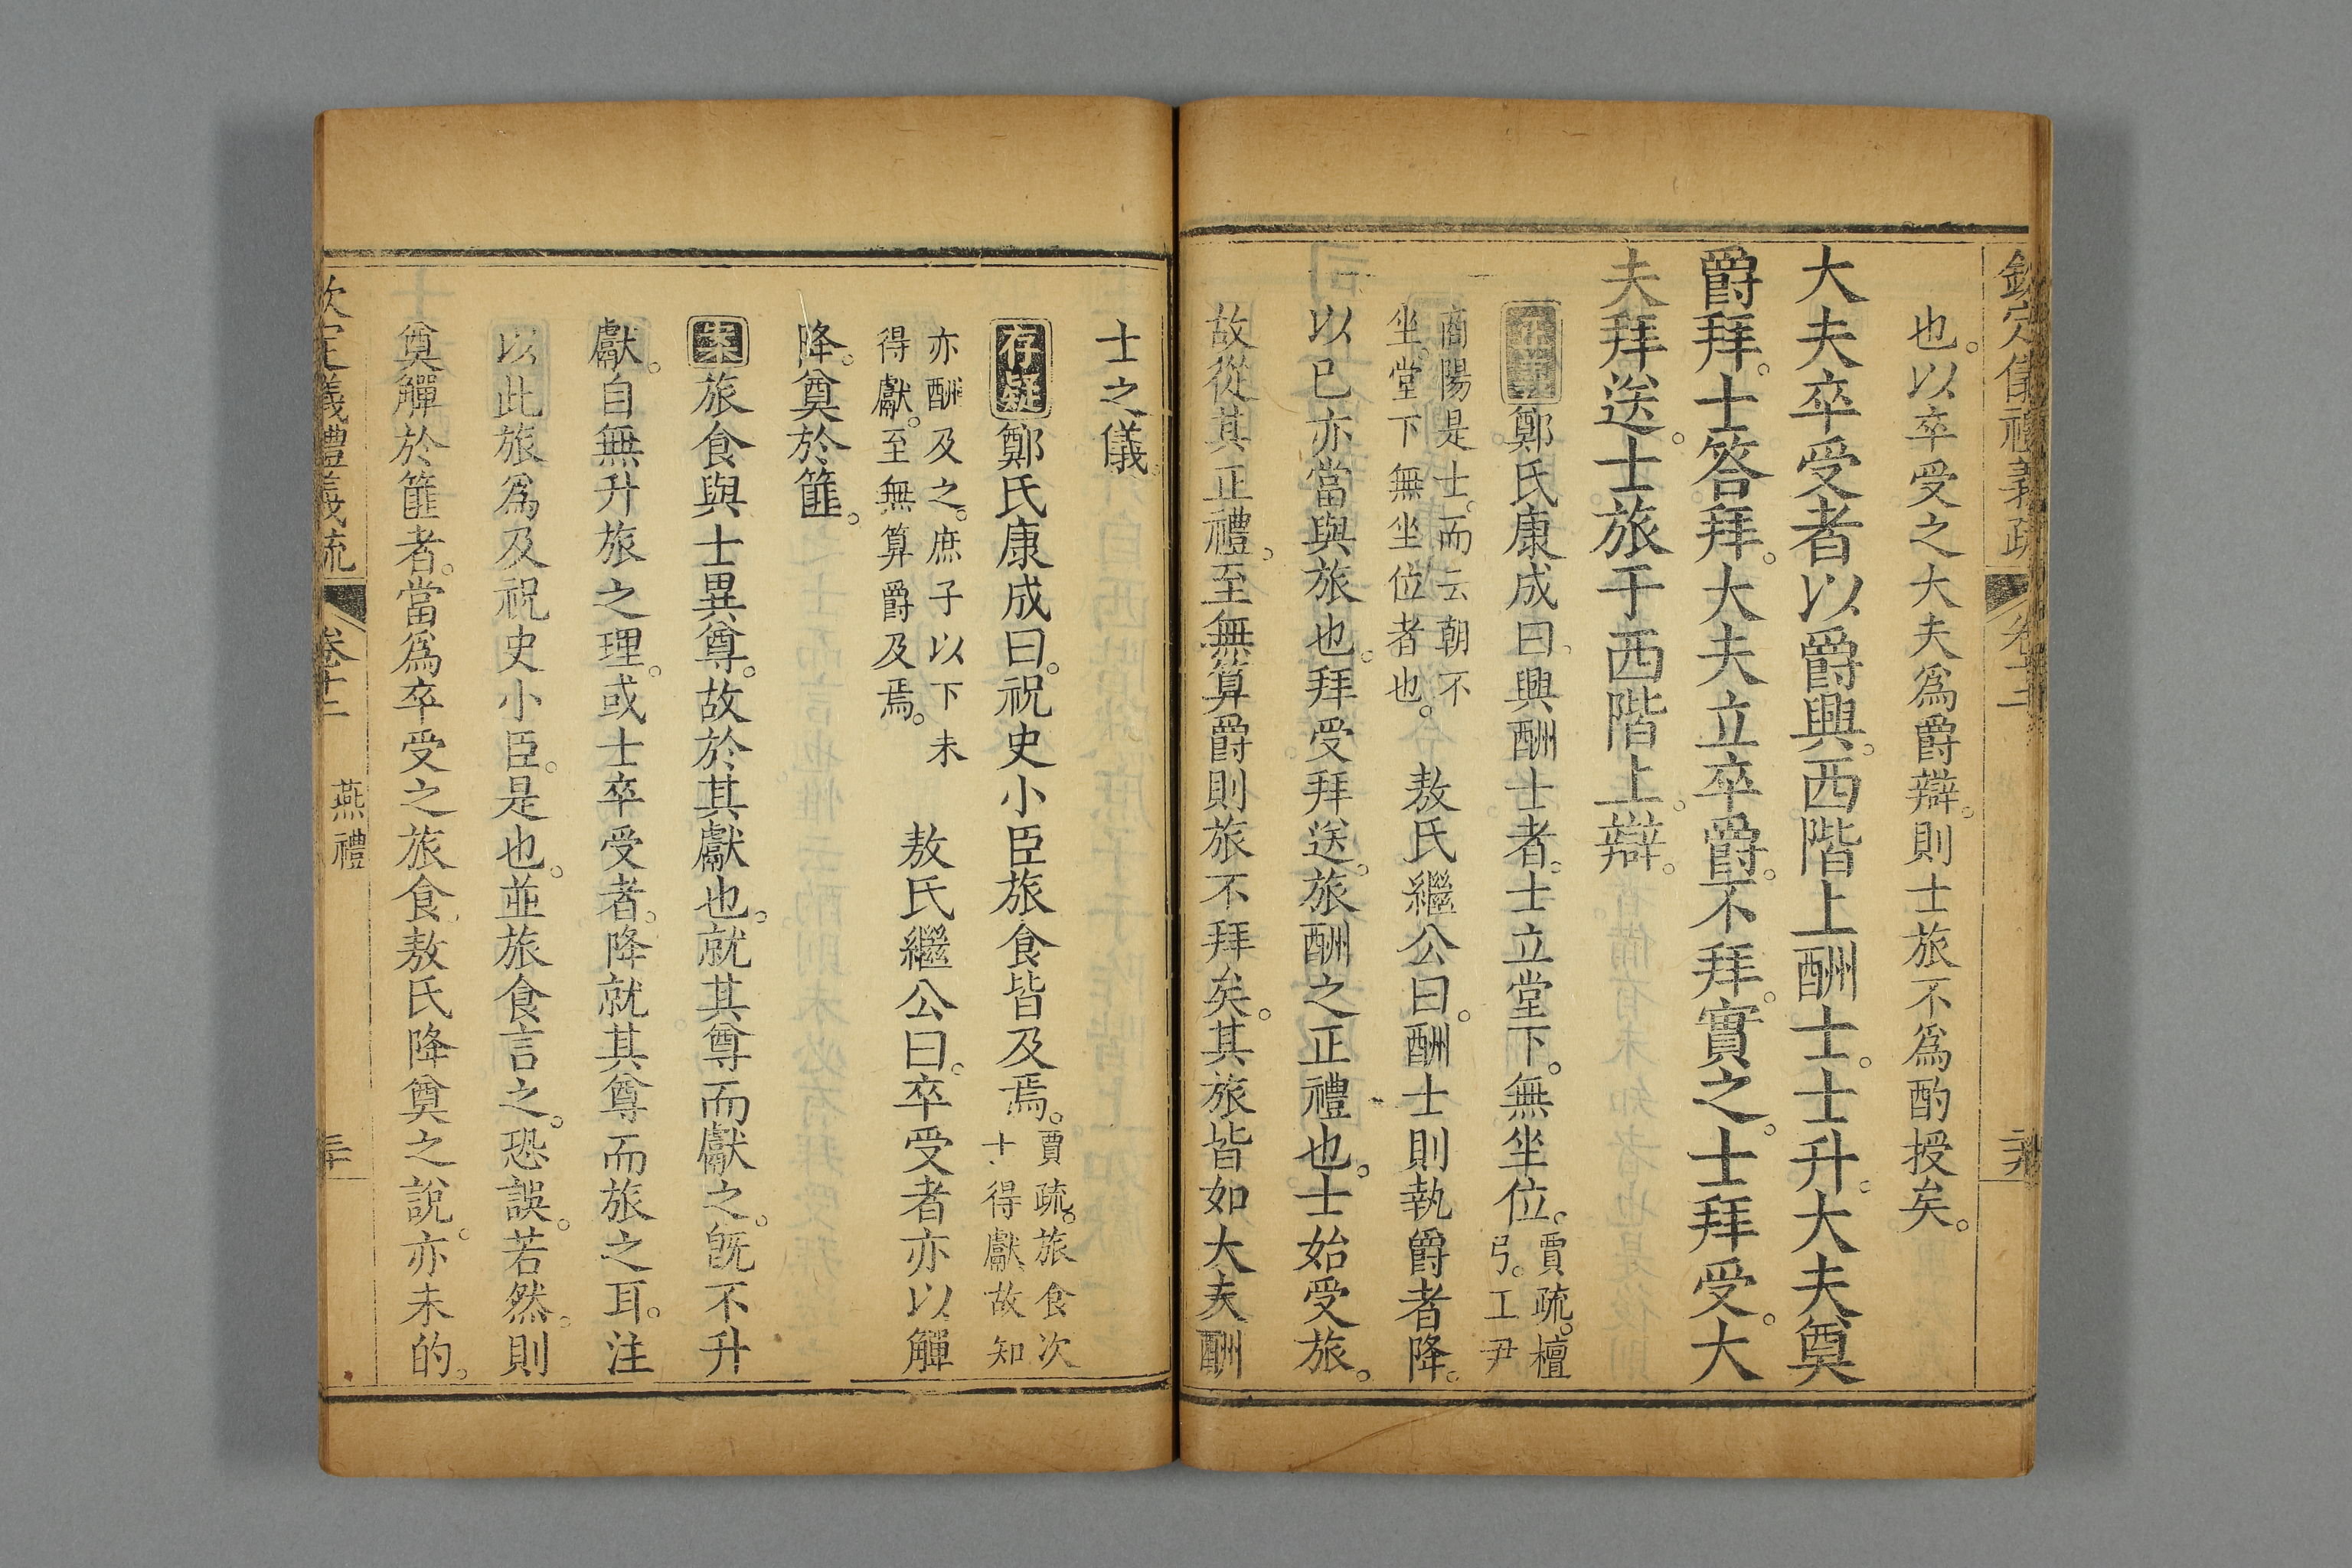 欽定儀禮義疏 卷十二
也。以卒受之大夫爲爵辯。則士旅不爲酌授矣。
大夫卒受者以爵興。西階上酬士。士升。大夫奠
爵拜。士答拜。大夫立卒爵。不拜。實之。士拜受。大
夫拜送。士旅于西階上。辯。
鄭氏康成曰、興酬士者。士立堂下。無坐位。
賈疏。檀
弓。工尹
商陽是士。而云朝不
坐。堂下無坐位者也。
敖氏繼公曰。酬士則執爵者降。
以已亦當與旅也。拜受拜送。旅酬之正禮也。士始受旅。
故從其正禮。至無算爵則旅不拜矣。其旅皆如大夫酬
士之儀。
存疑鄭氏康成曰。祝史小臣旅食皆及焉。
賈疏。旅食次
士、得獻故知
亦酬及之。庶子以下未
得獻。至無算爵及焉。
敖氏繼公曰。卒受者亦以觶
降。奠於篚。
案旅食與士異尊。故於其獻也。就其尊而獻之。旣不升
獻。自無升旅之理。或士卒受者。降就其尊而旅之耳。注
以此旅爲及祝史小臣。是也。並旅食言之。恐誤。若然。則
奠觶於篚者。當爲卒受之旅食。敖氏降奠之說。亦未的。
欽定儀禮義疏 卷十二 燕禮 三十